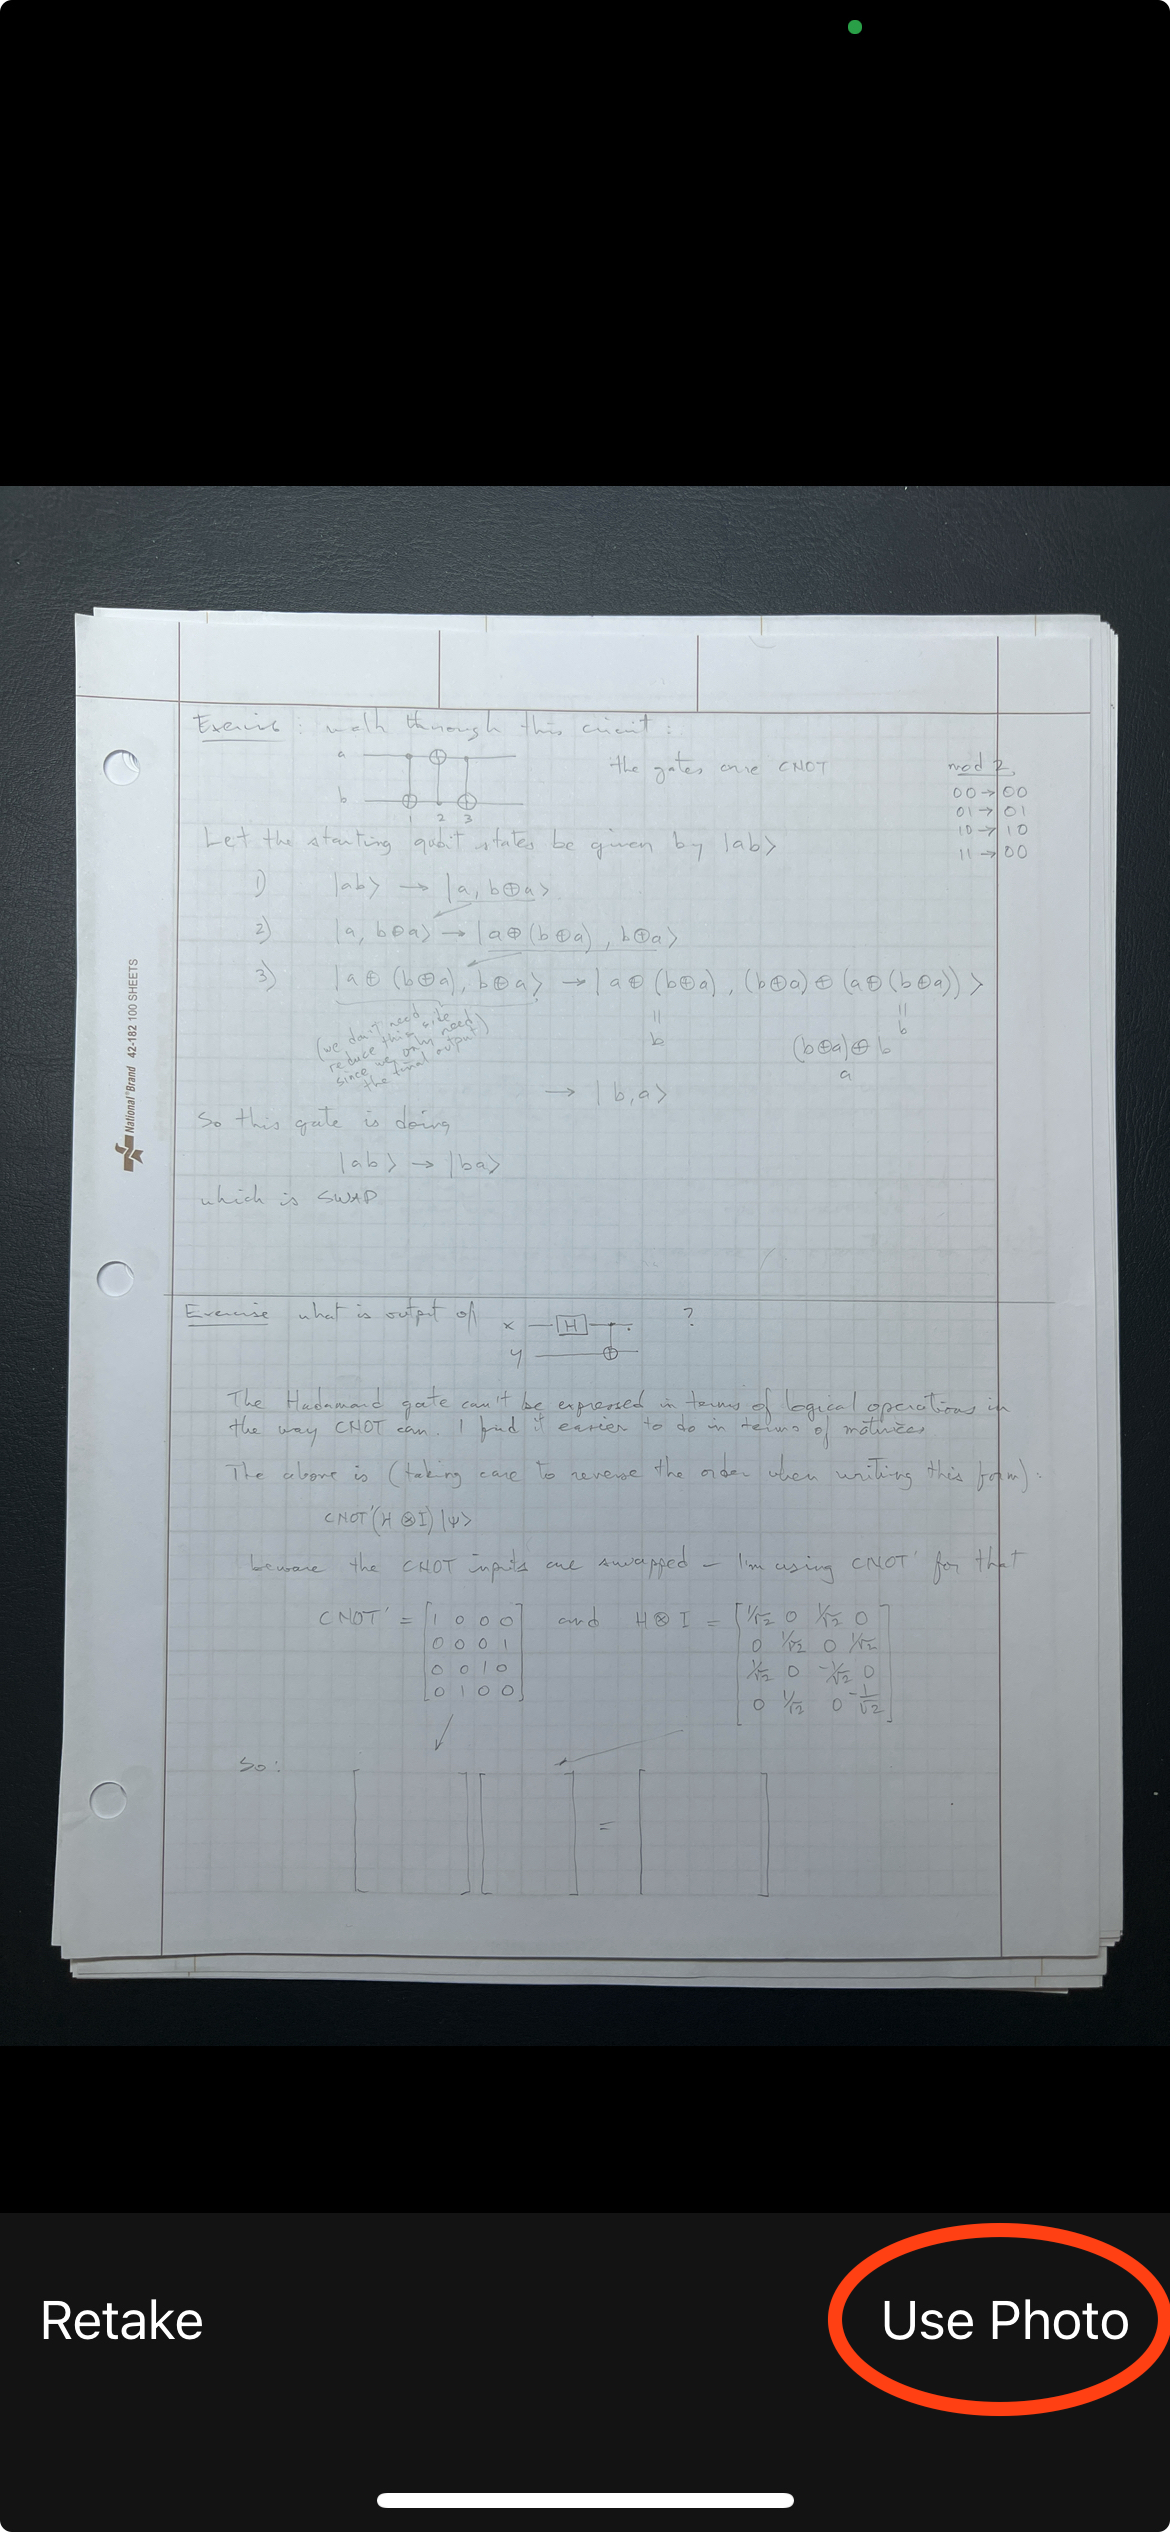 Exercise: walk through this circuit:
a
the gates are CNOT
mod 2
b
00 → 00
01 → 01
1 2 3
10 → 10
Let the starting qubit states be given by |ab>
11 → 00
1) |ab> → |a, b⊕a>
2) |a, b⊕a> → |a⊕(b⊕a), b⊕a>
3) |a⊕(b⊕a), b⊕a> → |a⊕(b⊕a), (b⊕a)⊕(a⊕(b⊕a))>
(we don't need
reduce this side
since we only need
the final output)
=
b
=
b
(b⊕a)⊕b
a
→ |b,a>
So this gate is doing
|ab> → |ba>
which is SWAP
National Brand 42-182 100 SHEETS
Exercise what is output of x H ?
y
The Hadamard gate can't be expressed in terms of logical operations in
the way CNOT can. I find it easier to do in terms of matrices
The above is (taking care to reverse the order when writing this form):
CNOT'(H⊗I)|ψ>
beware the CNOT inputs are swapped – I'm using CNOT' for that
CNOT' = [1 0 0 0 and H⊗I = [1/√2 0 1/√2 0
0 0 0 1 0 1/√2 0 1/√2
0 0 1 0 1/√2 0 -1/√2 0
0 1 0 0] 0 1/√2 0 -1/√2]
So:
[ ] [ ] = [ ]
Retake Use Photo